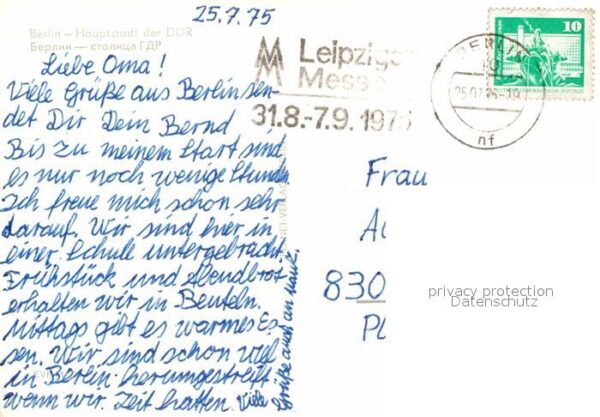 25.7.75
Berlin – Hauptstadt der DDR
Берлин — столица ГДР
Liebe Oma!
Viele Grüße aus Berlin sen-
det Dir Dein Bernd
Bis zu meinem Start sind
es nur noch wenige Stunden
Ich freue mich schon sehr
darauf. Wir sind hier in
einer Schule untergebracht.
Frühstück und Abendbrot
erhalten wir in Beuteln.
Mittags gibt es warmes Es-
sen. Wir sind schon viel
in Berlin herumgestreift
wenn wir Zeit hatten. Viele
Grüße auch an
MM Leipziger
Messe
31.8.-7.9.1975
BERLIN
nf
10
Frau
830
privacy protection
Datenschutz